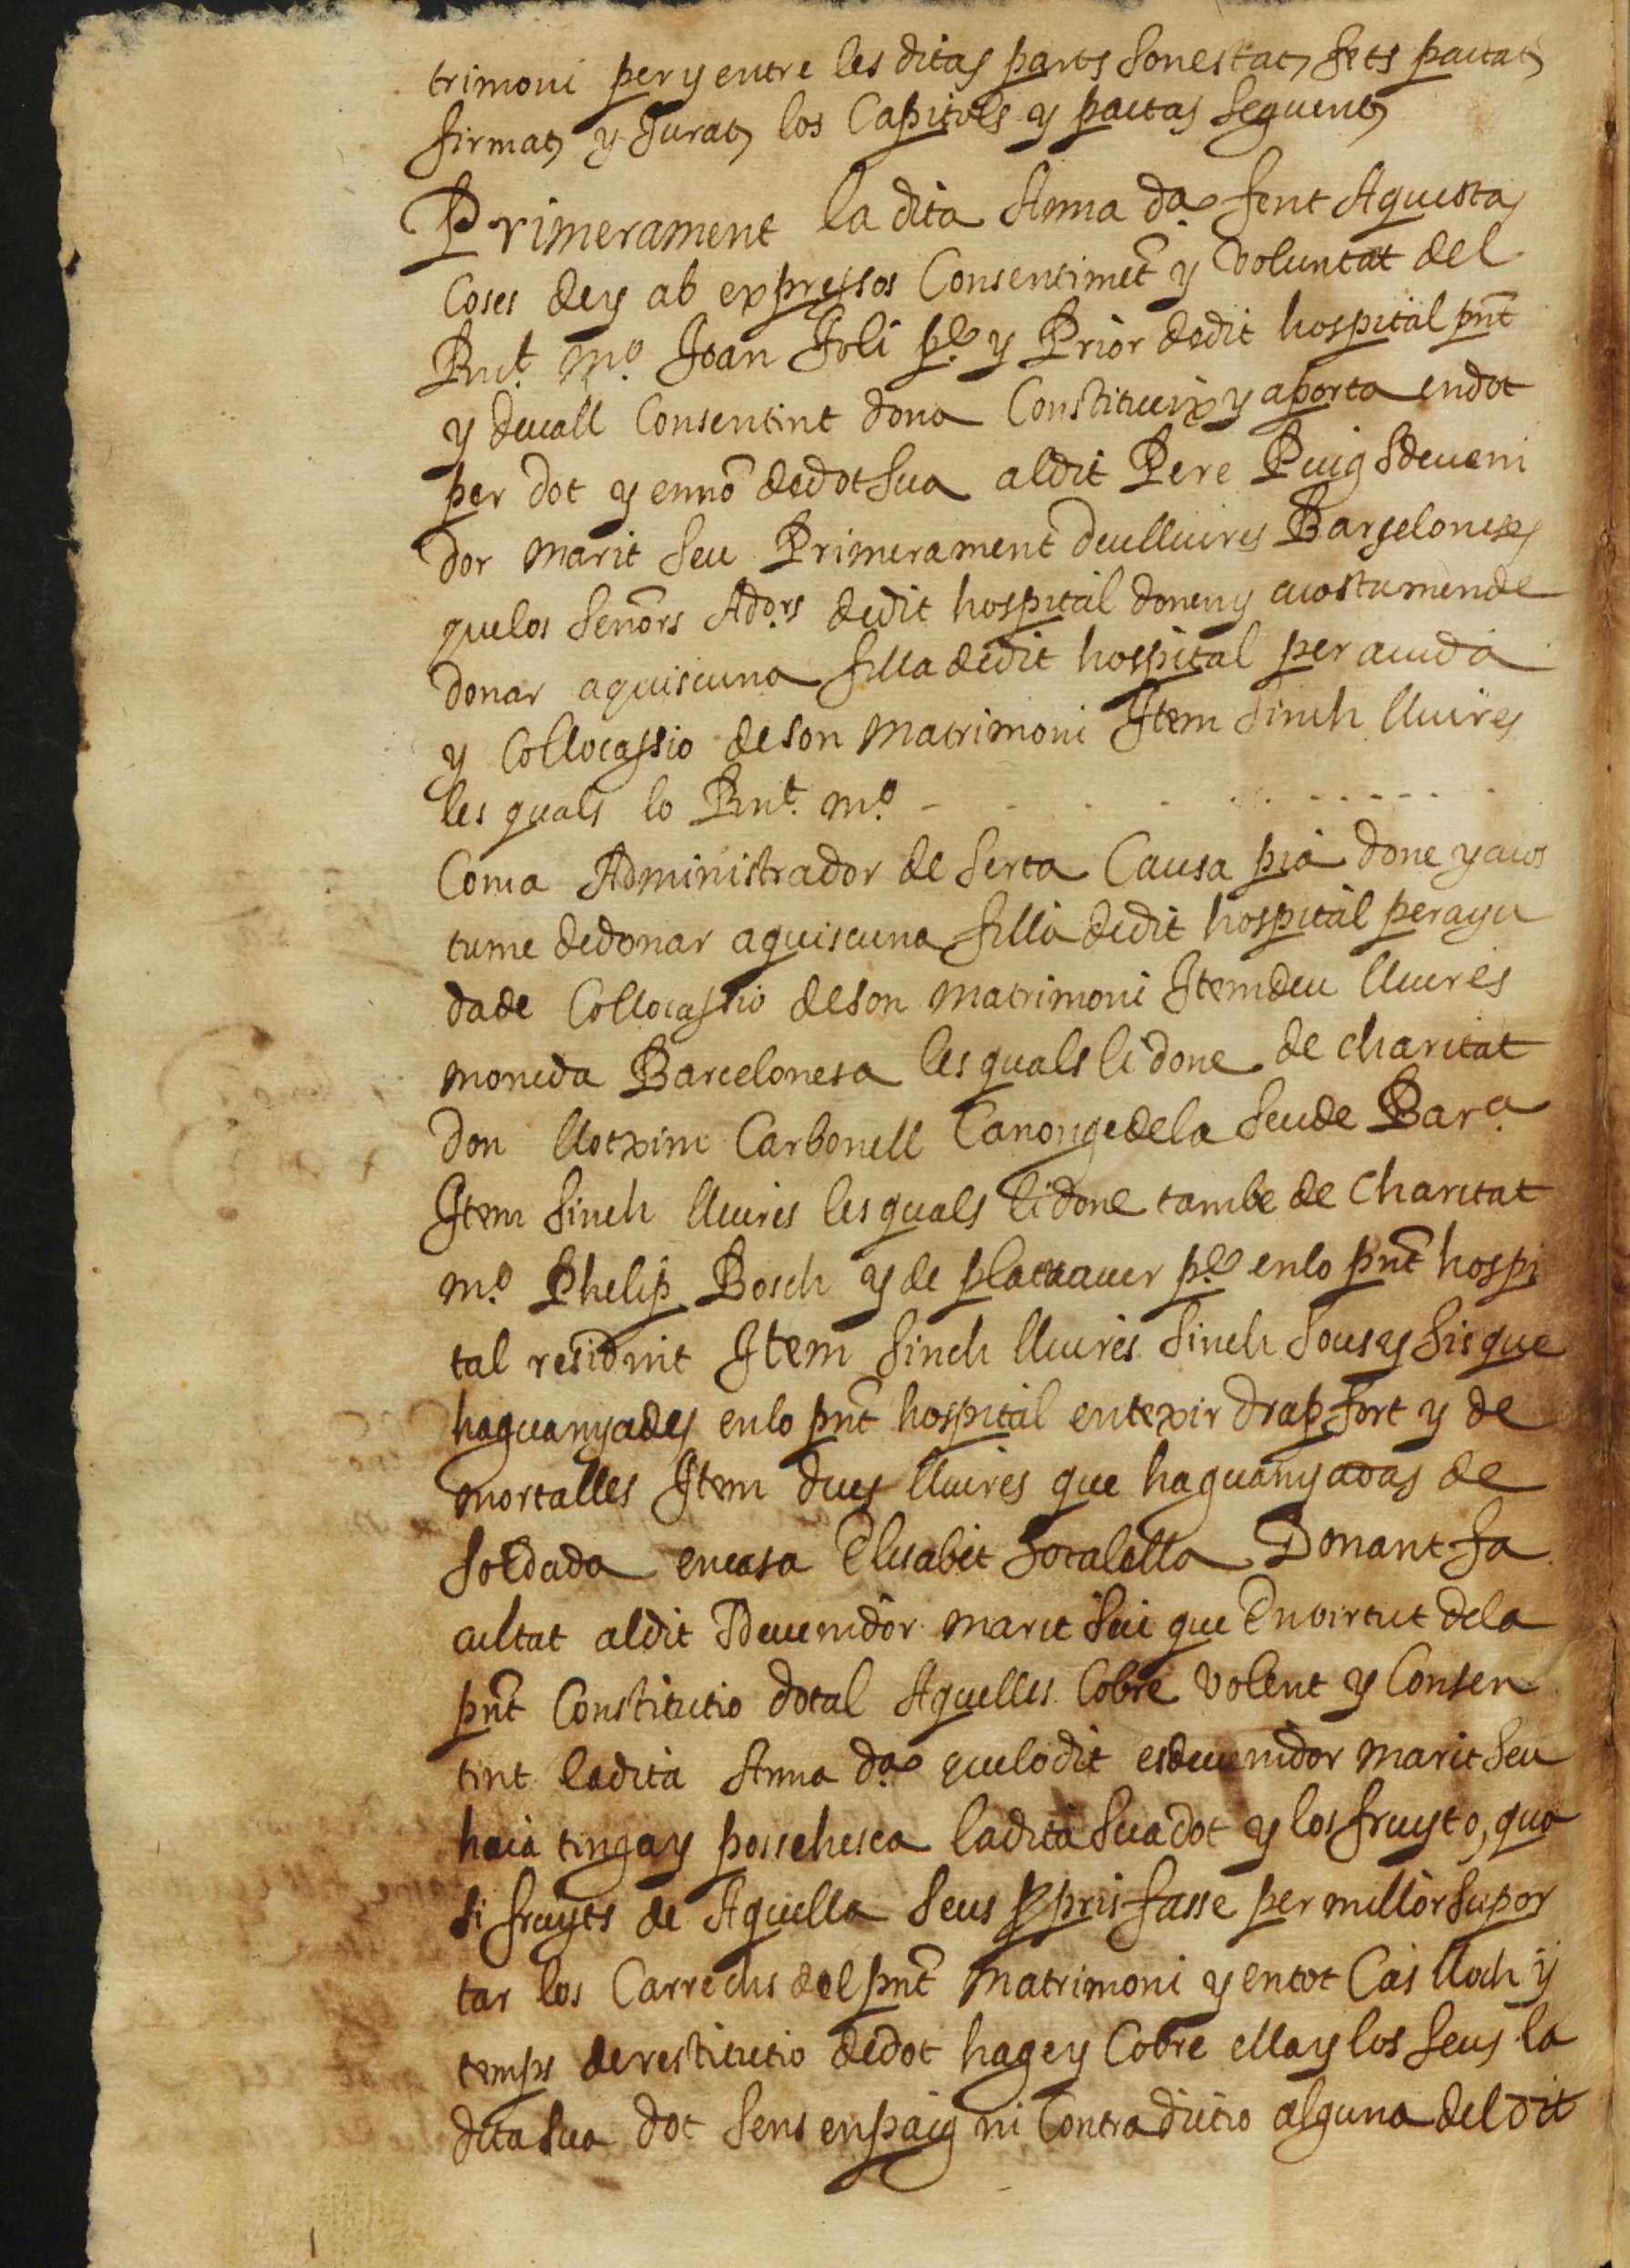 trimoni per y entre les ditas parts son estats fets pactats
firmats y Jurats los Capitols y pactas seguents
Primerament la dita Anna da. fent Aquestas
Coses dey ab expressos Consentimēt y voluntat del
Rnt. mo. Joan Joli pe. y Prior de dit hospital pnt
y devall Consentint dona Constitueix y aporta en dot
per dot y en nō de dot sua al dit Pere Puig Sdeveni
dor marit seu Primerament deu lliures Barceloneses
que los Senōrs Ador.s de dit hospital donen y acostumen de
donar a quiscuna filla de dit hospital per aiuda
y Collocassio de son matrimoni Item Sinch lliures
les quals lo Rnt. mo. - - - - - - - - - -
Com a Administrador de Serta Causa pia done y acos
tume de donar a quiscuna filla de dit hospital per aju
da de Collocassio de son matrimoni Item deu lliures
moneda Barcelonesa les quals li done de charitat
don Canonge de la Seu de Bara.
Item Sinch lliures les quals li done tambe de Charitat
mo. Phelip Bosch y de pe. en lo pnt hospi
tal resident Item Sinch lliures Sinch Sous y Sis que
ha guanyades en lo pnt hospital en texir drap fort y de
mortalles Item dues lliures que ha guanyadas de
soldada en casa Elisabet Donant fa
cultat al dit Sdevenidor marit Seu que En virtut de la
pnt Constitutio dotal Aquelles Cobre volent y Consen
tint la dita Anna da. que lo dit esdevenidor marit Seu
haia tinga y possehesca la dita Sua dot y los fruyts, qua
si fruyts de Aquella Seus ppris fasse per millor Supor
tar los Carrechs del pnt matrimoni y en tot Cas lloch y
temps de restitutio de dot hage y Cobre ella y los Seus la
dita Sua dot Sens enpaig ni Contradictio alguna del dit